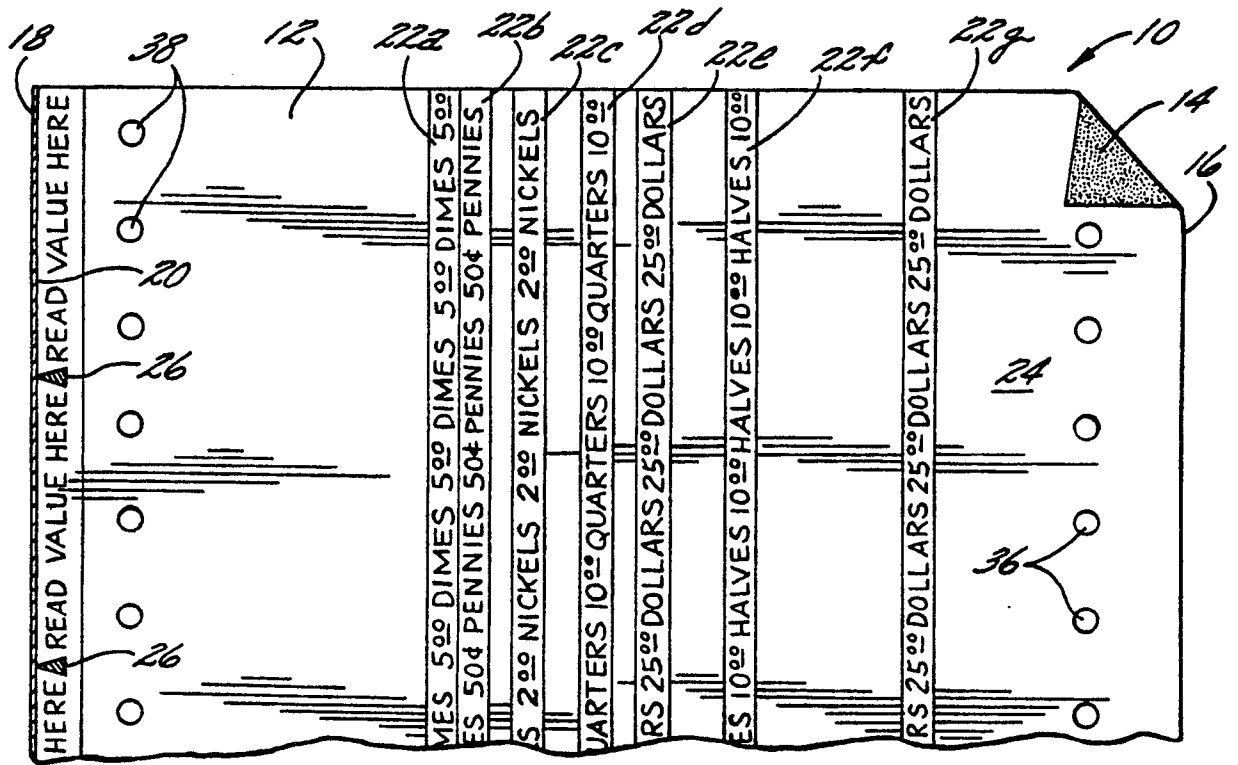 18
38
12
22a
22b
22c
22d
22e
22f
22g
10
14
16
20
26
26
24
36
HERE READ VALUE HERE READ VALUE HERE
MES 5.00 DIMES 5.00 DIMES 5.00 DIMES 5.00
ES 50¢ PENNIES 50¢ PENNIES 50¢ PENNIES
S 2.00 NICKELS 2.00 NICKELS 2.00 NICKELS
UARTERS 10.00 QUARTERS 10.00 QUARTERS 10.00
RS 25.00 DOLLARS 25.00 DOLLARS 25.00 DOLLARS
ES 10.00 HALVES 10.00 HALVES 10.00 HALVES 10.00
RS 25.00 DOLLARS 25.00 DOLLARS 25.00 DOLLARS